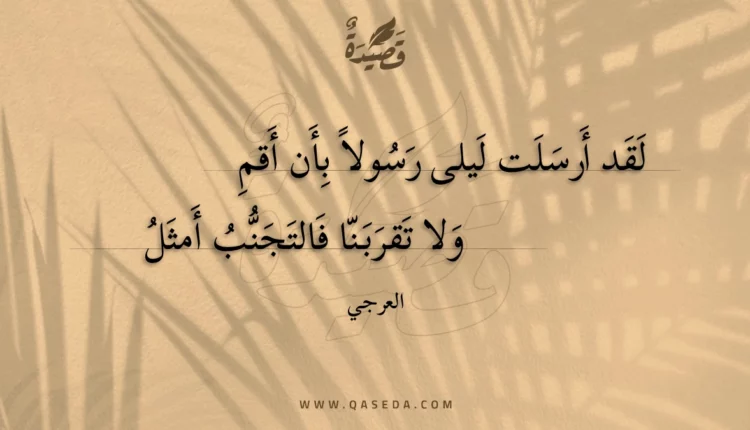 قَصِيدَةٌ
لَقَد أَرسَلَت لَيلى رَسُولاً بِأَن أَقمِ
وَلا تَقرَبَنّا فَالتَجَنُّبُ أَمثَلُ
العرجي
WWW.QASEDA.COM